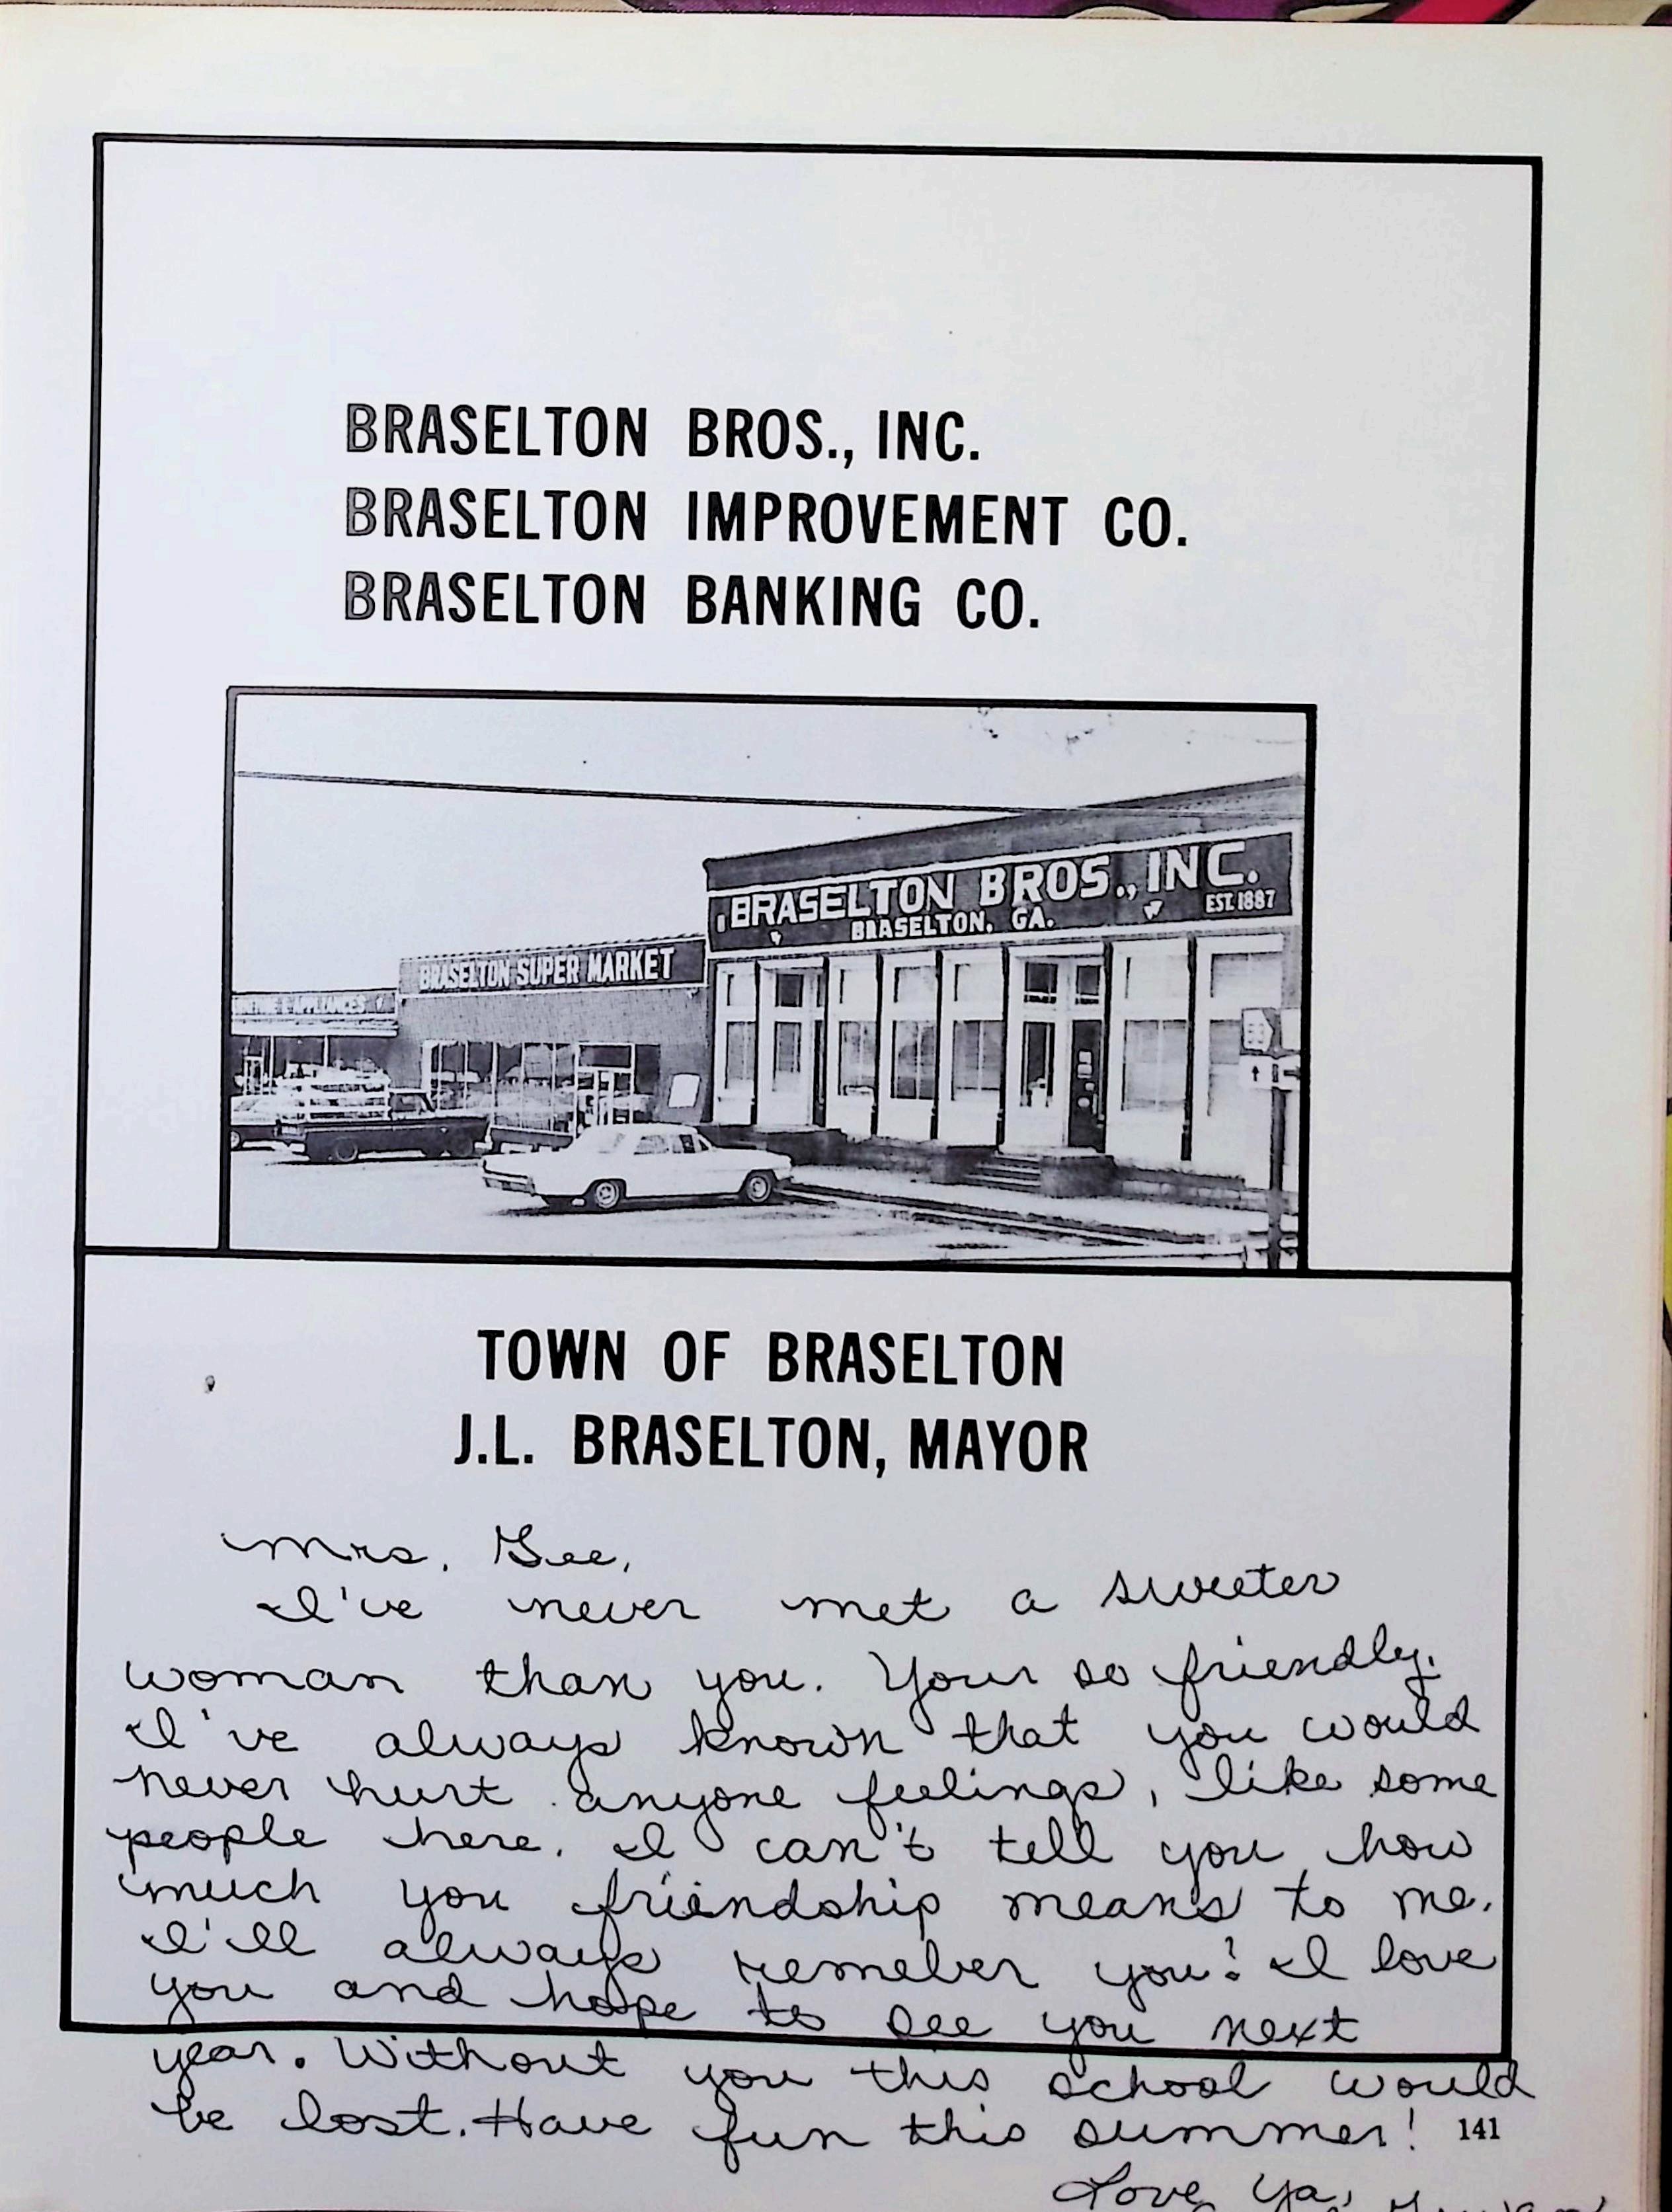 BRASELTON BROS., INC.
BRASELTON IMPROVEMENT CO.
BRASELTON BANKING CO.
BRASELTON BROS., INC.
EST. 1887
BRASELTON, GA.
BRASELTON SUPER MARKET
& APPLIANCES
TOWN OF BRASELTON
J.L. BRASELTON, MAYOR
Mrs. Gee,
I've never met a sweeter
woman than you. Your so friendly.
I've always known that you would
never hurt anyone feelings, like some
people here. I can't tell you how
much you friendship means to me.
I'll always remeber you! I love
you and hope to see you next
year. Without you this school would
be lost. Have fun this summer!
141
Love Ya,